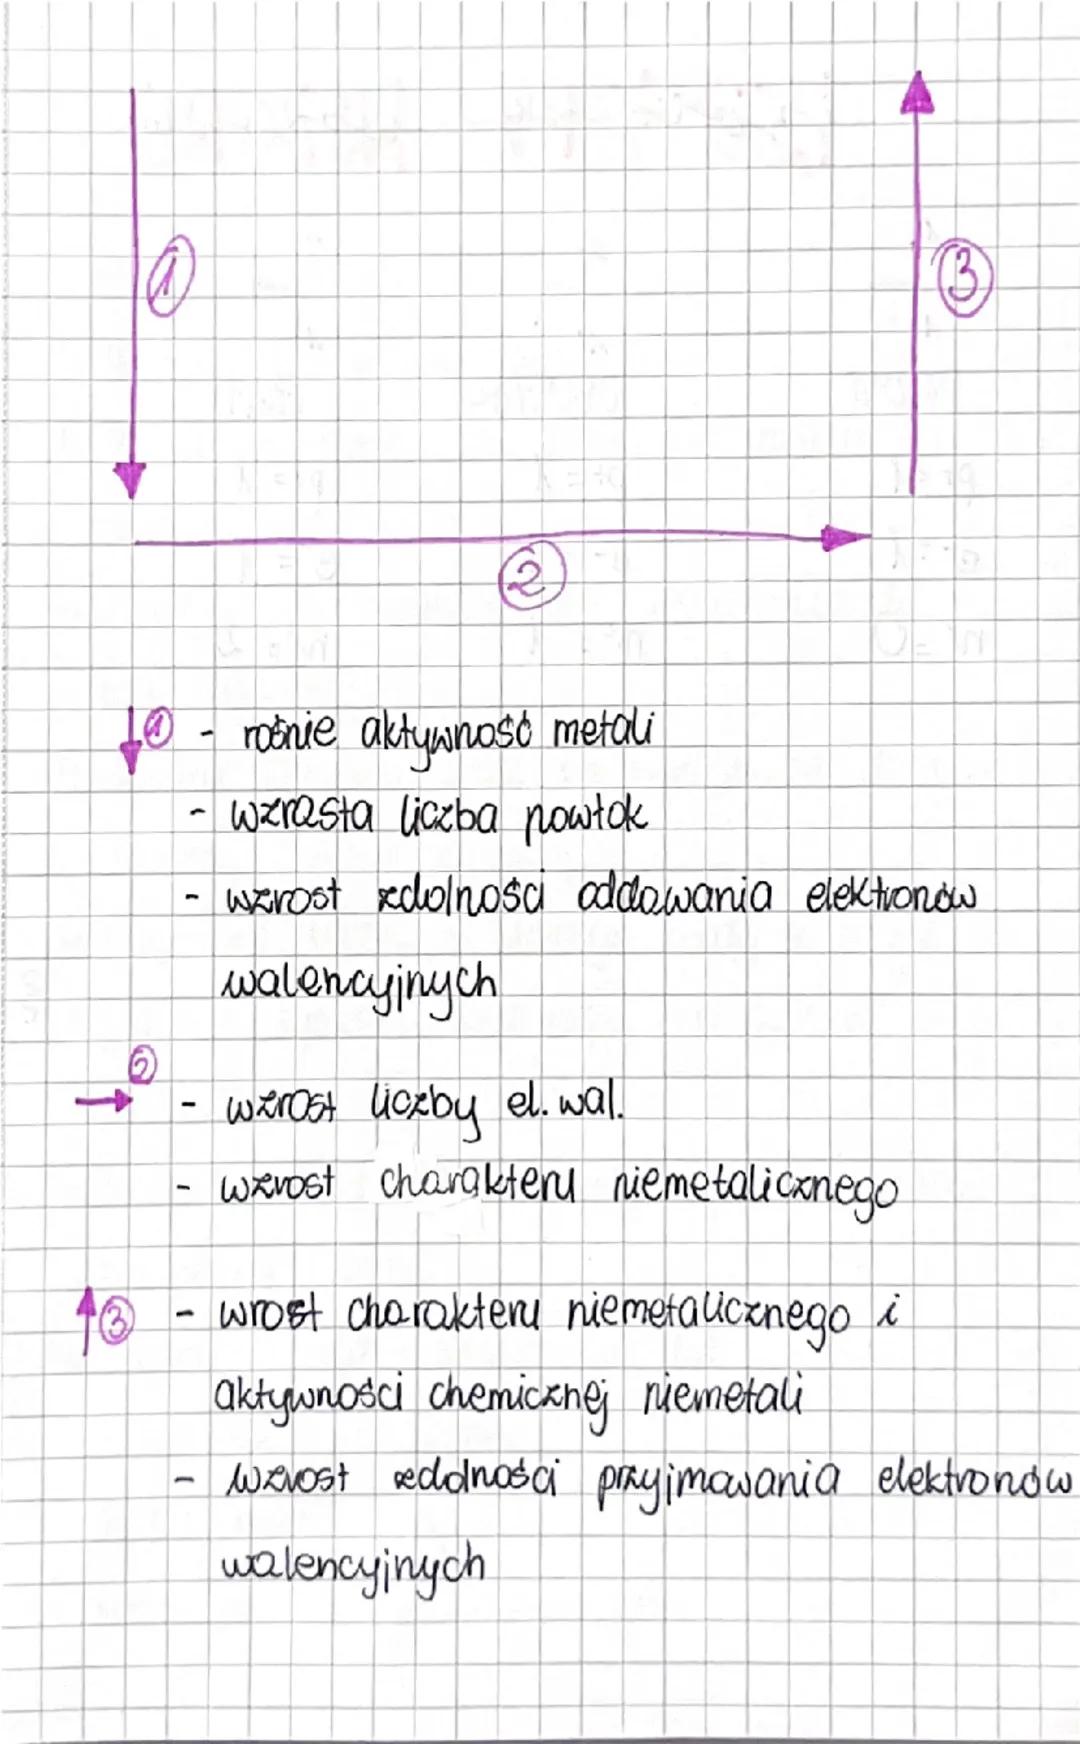 1
3
2
1 - rośnie aktywność metali
- wzrasta liczba powłok
- wzrost zdolności oddawania elektronów
walencyjnych
2
- wzrost liczby el. wal.
- wzrost charakteru niemetalicznego
3 - wrost charakteru niemetalicznego i
aktywności chemicznej niemetali
- wzrost zdolności przyjmowania elektronów
walencyjnych